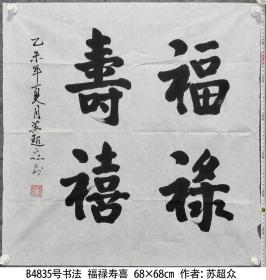 福祿
壽禧
乙未年夏月苏超众书
B4835号书法 福禄寿喜 68×68cm 作者:苏超众